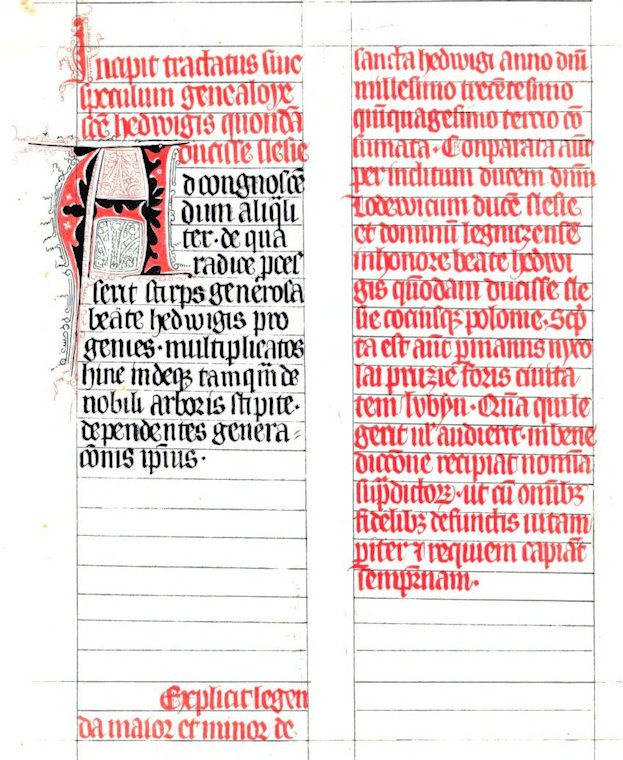 Incipit tractatus siue
speculum genealoye
scē hedwigis quondā
ducisse slesie
Ad congnoscē
dum aliq̄li
ter · de qua
radice p̄ces
serit stirps generosa
beate hedwigis pro
genies · multiplicatos
hinc indeqꝫ tamqūi de
nobili arboris stipite ·
dependentes genera=
cōnis ip̄ius ·
Explicit legen
da maior et minor de
sancta hedwigi anno dn̄i
millesimo trecētesimo
quīquagesimo tercio cō
sumata · Conparata aūt
per inclitum ducem dn̄m
Lodewicum ducē slesie
et dominū legniczensē
inhonorē beate hedwi
gis quōdam ducisse sle
sie tociusqꝫ polonie · Scp̄
ta est aūt ꝑ manus nyco
lai pruzie foris ciuita
tem lubyn · Qm̄a qui le
gerit ul' audierit · in bene
diccōne recipiat nomīa
sup̄dictorꝝ · ut cū om̄ibꝫ
fidelibꝫ defunctis uitam
ꝑiter ⁊ requiem capiāt
sempit̄nam ·